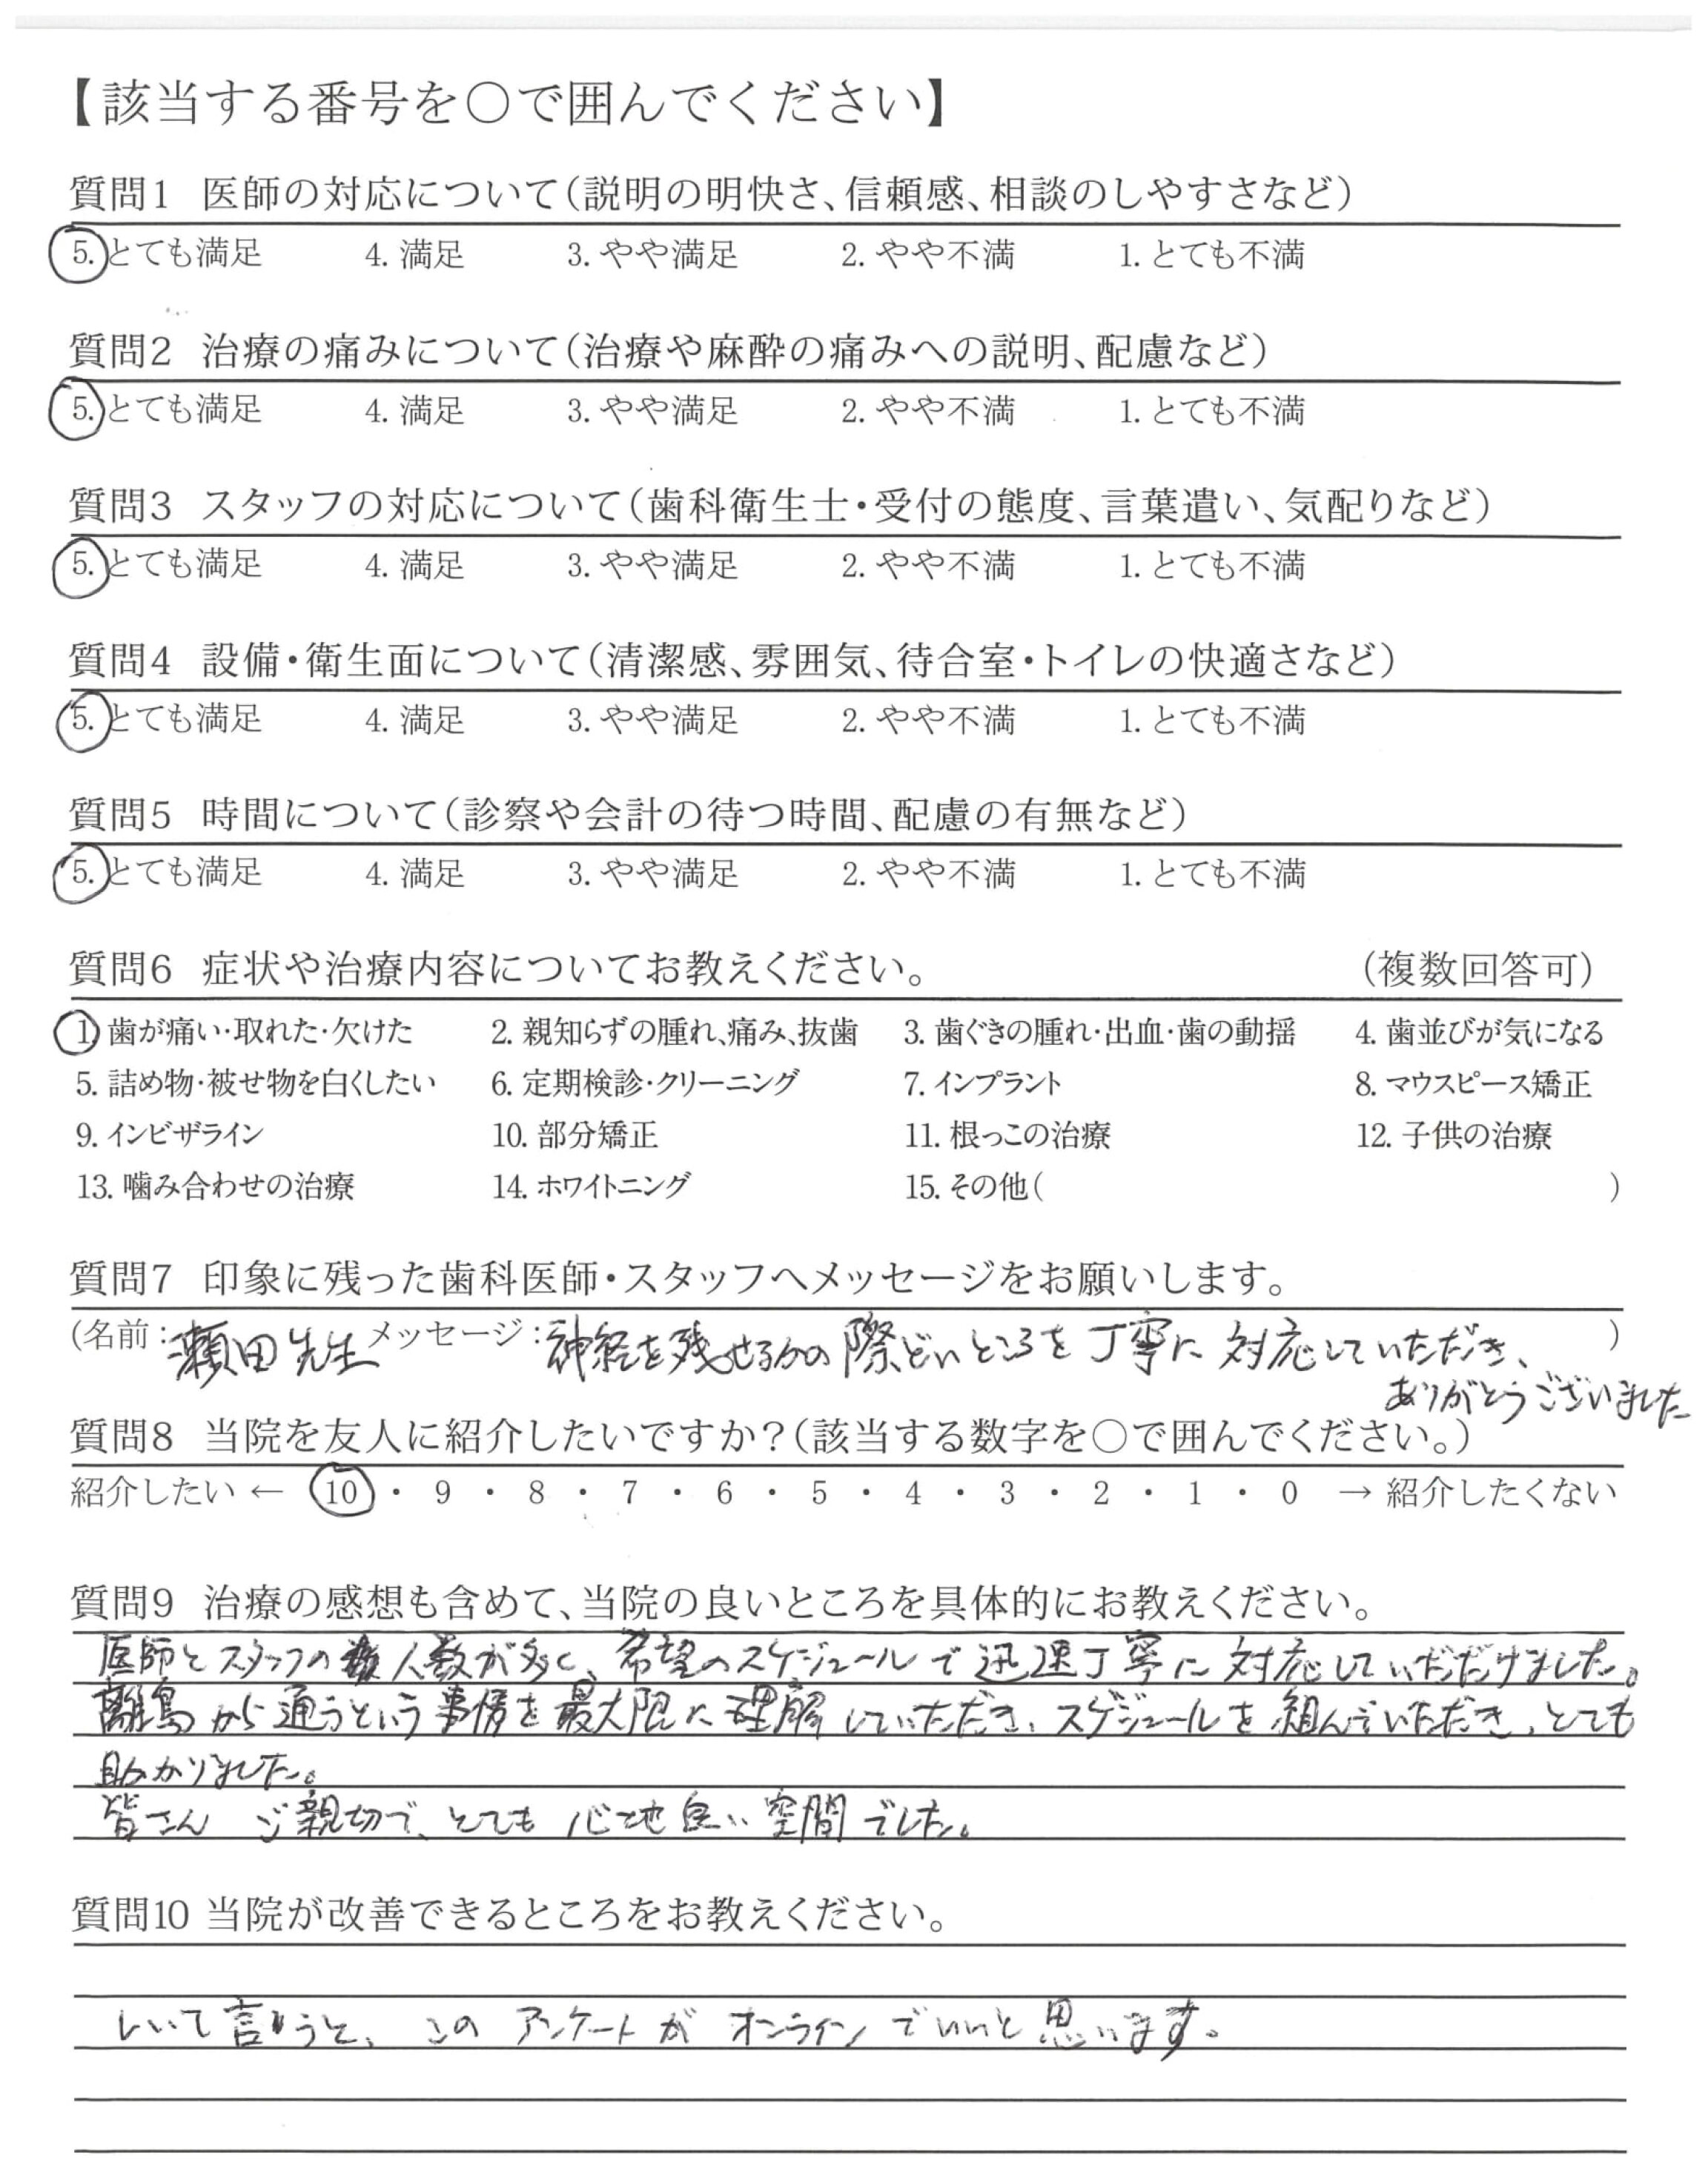 【該当する番号を○で囲んでください】
質問1 医師の対応について（説明の明快さ、信頼感、相談のしやすさなど）
5. とても満足 4. 満足 3. やや満足 2. やや不満 1. とても不満
質問2 治療の痛みについて（治療や麻酔の痛みへの説明、配慮など）
5. とても満足 4. 満足 3. やや満足 2. やや不満 1. とても不満
質問3 スタッフの対応について（歯科衛生士・受付の態度、言葉遣い、気配りなど）
5. とても満足 4. 満足 3. やや満足 2. やや不満 1. とても不満
質問4 設備・衛生面について（清潔感、雰囲気、待合室・トイレの快適さなど）
5. とても満足 4. 満足 3. やや満足 2. やや不満 1. とても不満
質問5 時間について（診察や会計の待つ時間、配慮の有無など）
5. とても満足 4. 満足 3. やや満足 2. やや不満 1. とても不満
質問6 症状や治療内容についてお教えください。 （複数回答可）
1. 歯が痛い・取れた・欠けた 2. 親知らずの腫れ、痛み、抜歯 3. 歯ぐきの腫れ・出血・歯の動揺 4. 歯並びが気になる
5. 詰め物・被せ物を白くしたい 6. 定期検診・クリーニング 7. インプラント 8. マウスピース矯正
9. インビザライン 10. 部分矯正 11. 根っこの治療 12. 子供の治療
13. 噛み合わせの治療 14. ホワイトニング 15. その他（ ）
質問7 印象に残った歯科医師・スタッフへメッセージをお願いします。
（名前：瀬田先生 メッセージ：神経を残せるかの際どいところを丁寧に対応していただき、 ）
ありがとうございました
質問8 当院を友人に紹介したいですか？（該当する数字を○で囲んでください。）
紹介したい ← 10 ・ 9 ・ 8 ・ 7 ・ 6 ・ 5 ・ 4 ・ 3 ・ 2 ・ 1 ・ 0 → 紹介したくない
質問9 治療の感想も含めて、当院の良いところを具体的にお教えください。
医師とスタッフの人数が多く、希望のスケジュールで迅速丁寧に対応していただけました。
離島から通うという事情を最大限に理解していただき、スケジュールを組んでいただき、とても
助かりました。
皆さん ご親切で、とても心地良い空間でした。
質問10 当院が改善できるところをお教えください。
しいて言うと、このアンケートがオンラインでいいと思います。